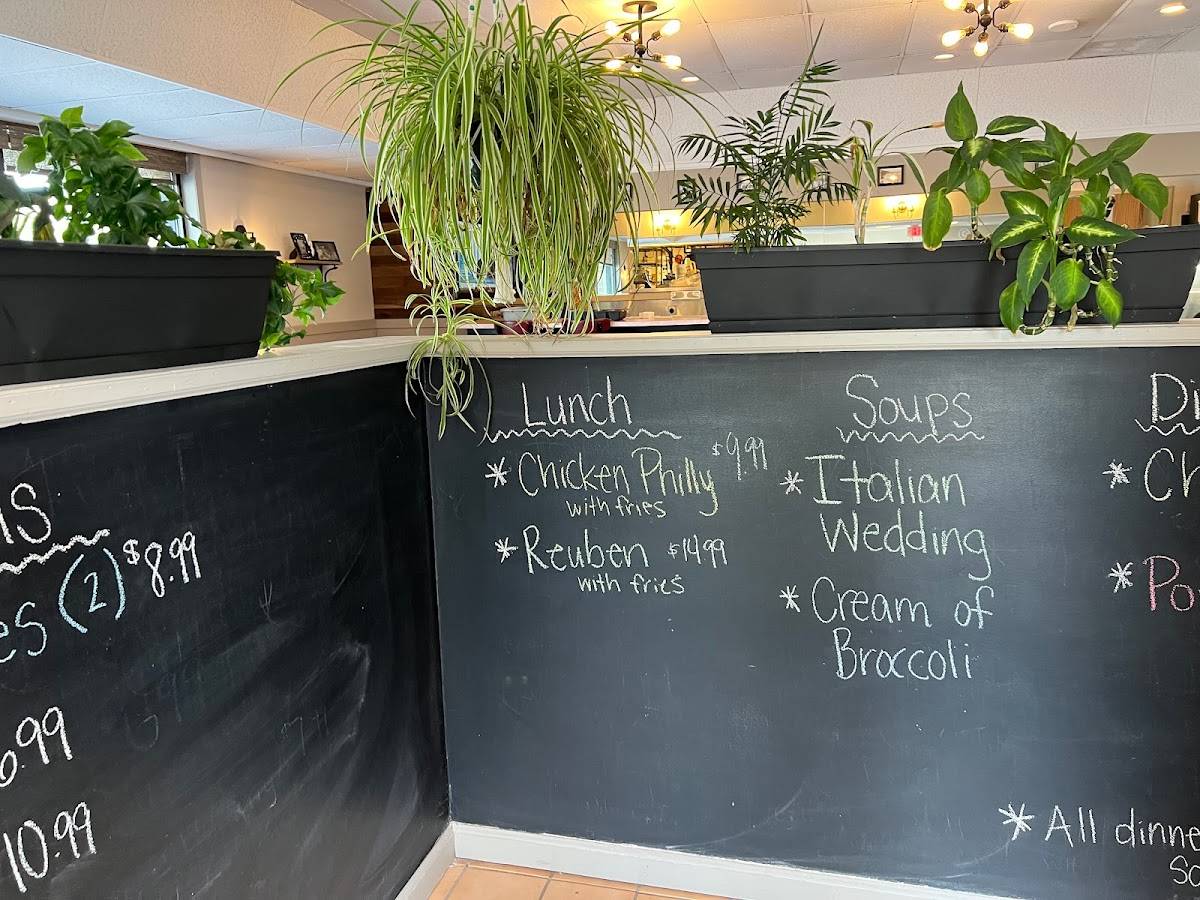 (2) $8.99
10.99
Lunch
* Chicken Philly $9.99
with fries
* Reuben $14.99
with fries
Soups
* Italian
Wedding
* Cream of
Broccoli
* All